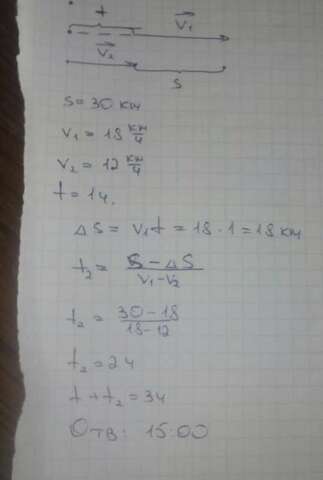 t
V₁
V₂
S
S = 30 км
V₁ = 18 км/ч
V₂ = 12 км/ч
t = 1ч.
ΔS = V₁t = 18 · 1 = 18 км
t₂ = (S - ΔS)/(V₁ - V₂)
t₂ = (30 - 18)/(18 - 12)
t₂ = 2ч
t + t₂ = 3ч
Отв: 15:00